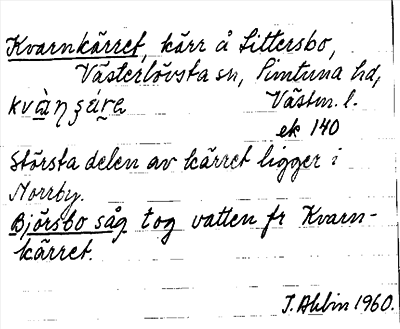 Kvarnkärret, kärr å Sittersbo,
Västerlövsta sn, Simtuna hd,
Västm. l.
ek 140
Största delen av kärret ligger i
Norrby.
Björsbo såg tog vatten fr Kvarn-
kärret.
J. Ahlin 1960.